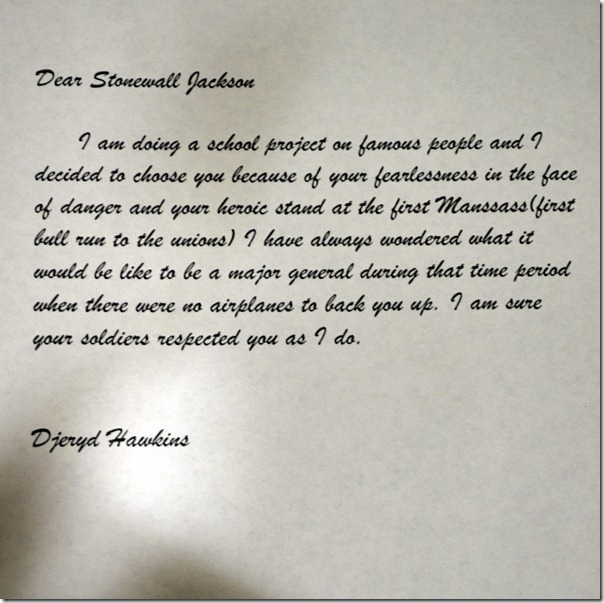 Dear Stonewall Jackson
I am doing a school project on famous people and I
decided to choose you because of your fearlessness in the face
of danger and your heroic stand at the first Manssass(first
bull run to the unions) I have always wondered what it
would be like to be a major general during that time period
when there were no airplanes to back you up. I am sure
your soldiers respected you as I do.
Djeryd Hawkins